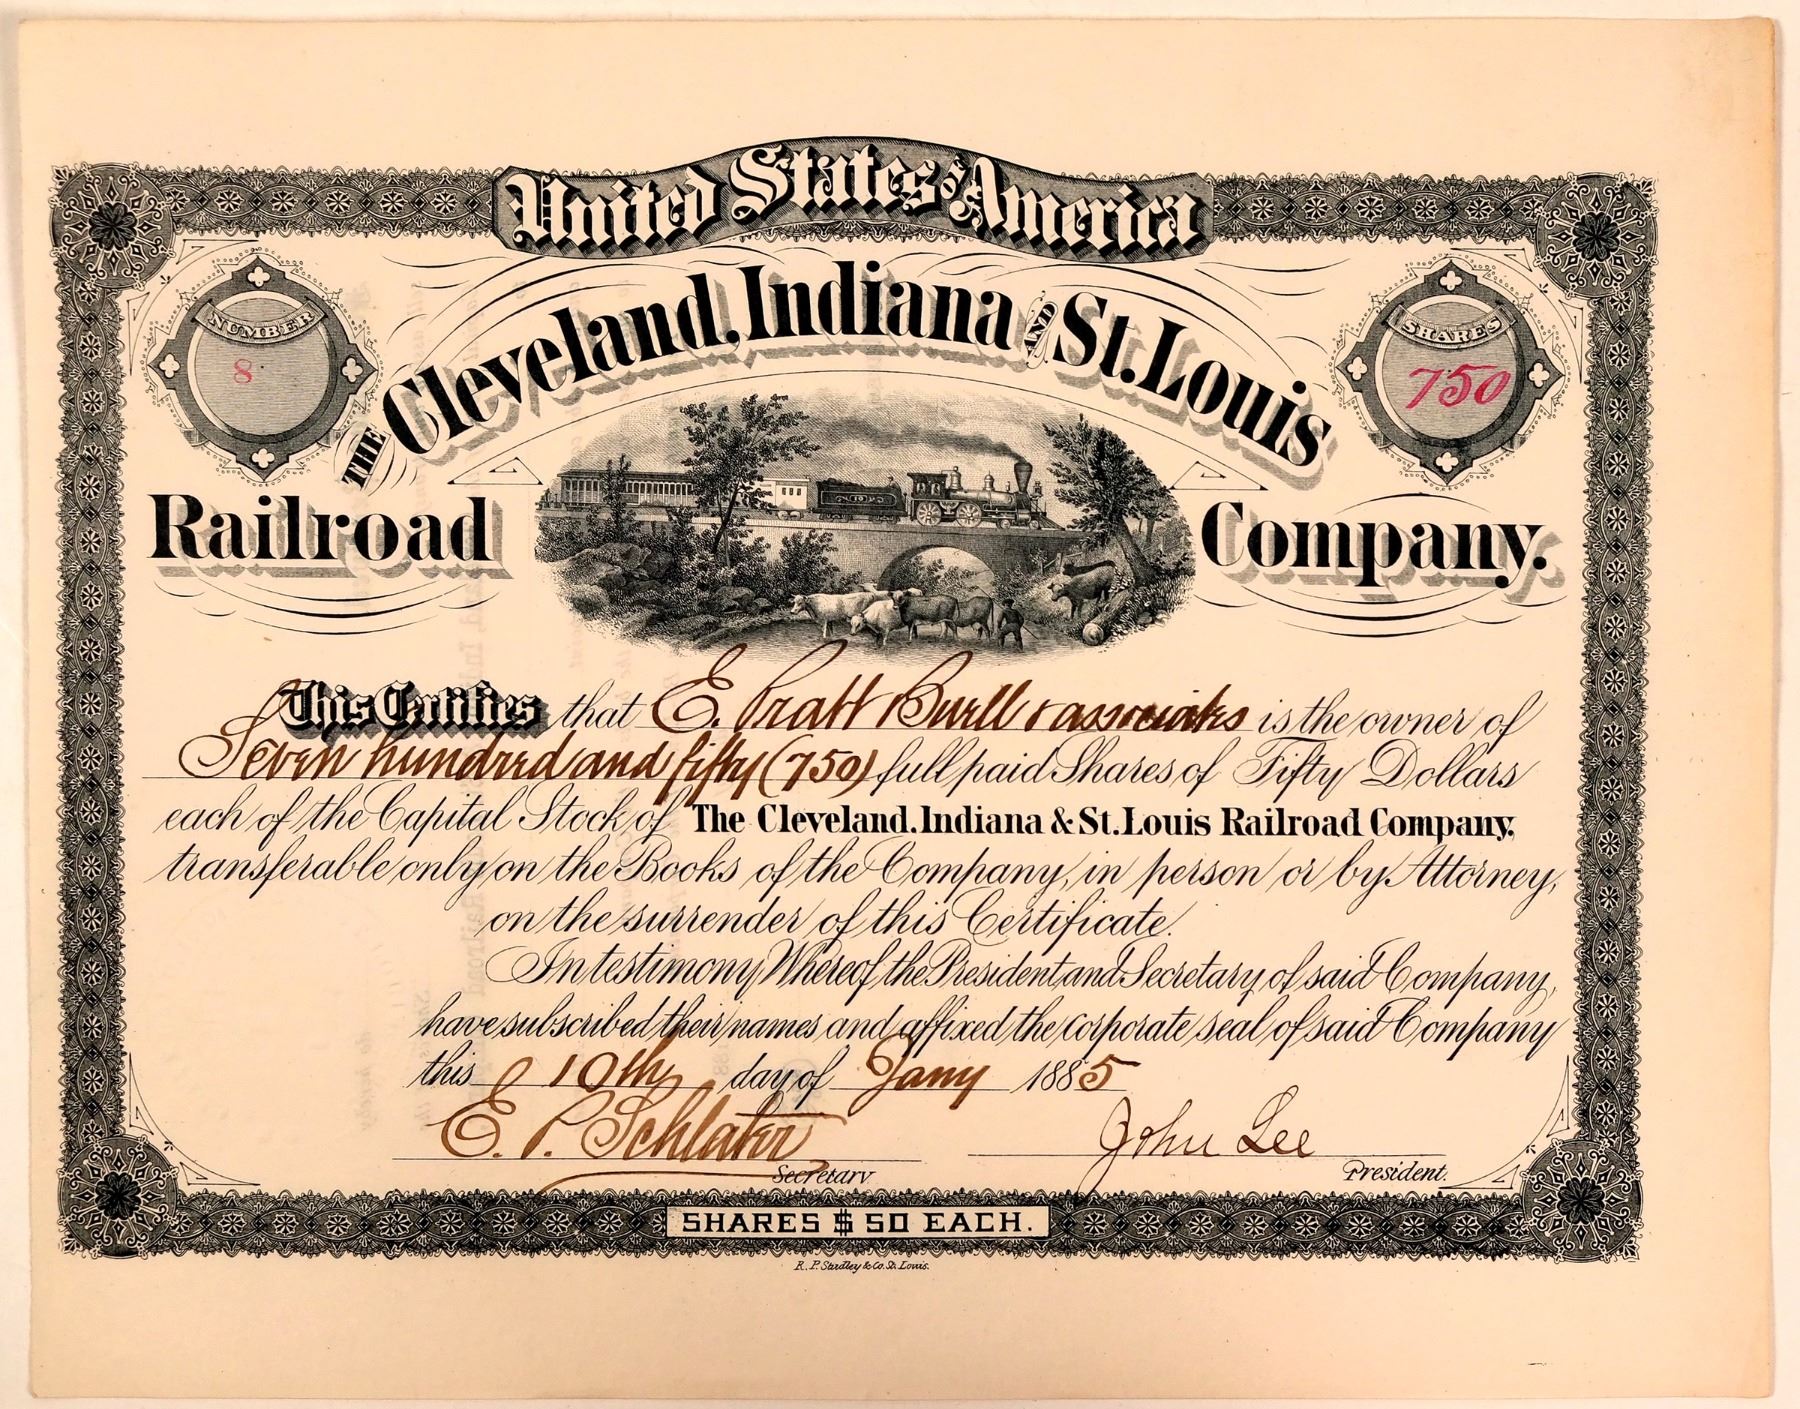 United States of America
NUMBER
8
SHARES
750
THE Cleveland, Indiana AND St. Louis
Railroad Company.
This Certifies that E. Pratt Buell & associates is the owner of
Seven hundred and fifty (750) full paid Shares of Fifty Dollars
each of the Capital Stock of The Cleveland, Indiana & St. Louis Railroad Company,
transferable only on the Books of the Company, in person or by Attorney,
on the surrender of this Certificate.
In testimony Whereof the President and Secretary of said Company,
have subscribed their names and affixed the corporate seal of said Company
this 10th day of Jany 1885
E. P. Schlater John Lee
Secretary President.
SHARES $50 EACH.
R. P. Studley & Co. St. Louis.